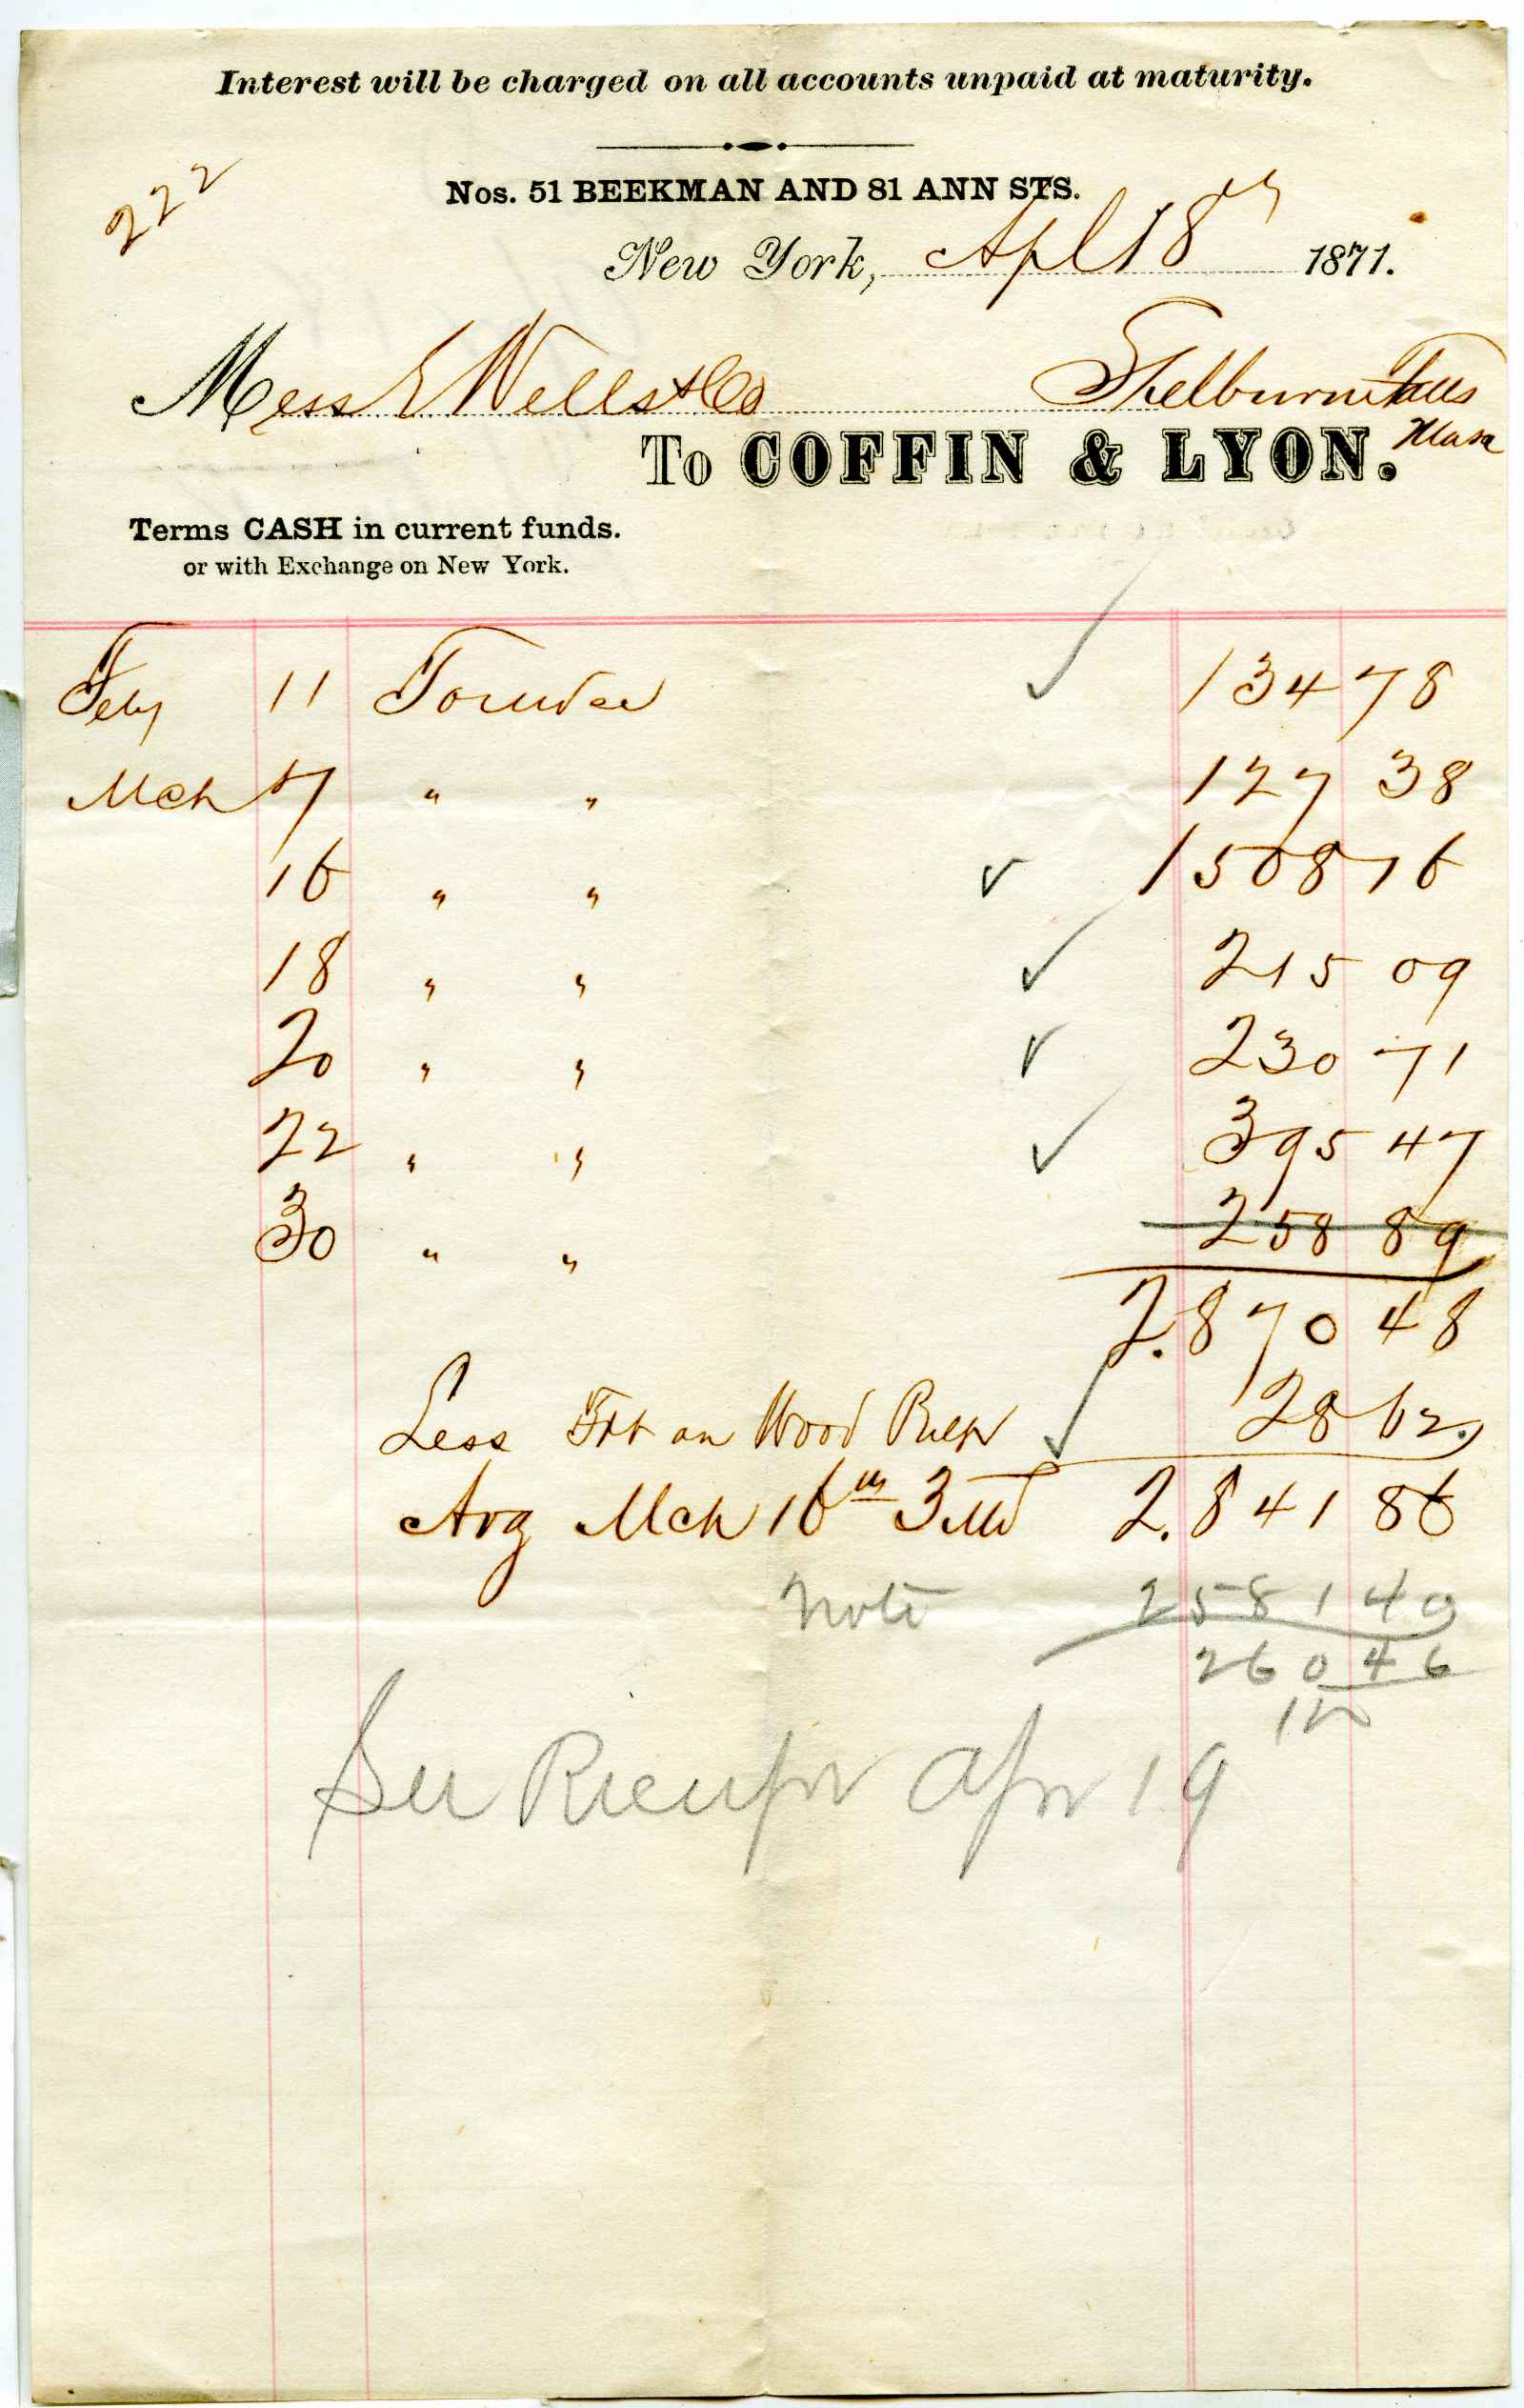 Interest will be charged on all accounts unpaid at maturity.
222
Nos. 51 BEEKMAN AND 81 ANN STS.
New York, Apl 18th 1871.
Mess E Wells & Co Shelburne Falls
Mass
To COFFIN & LYON.
Terms CASH in current funds.
or with Exchange on New York.
Feby 11 To mdse ✓ 134 78
Mch 7 " " 127 38
16 " " ✓ 1508 16
18 " " ✓ 215 09
20 " " ✓ 230 71
22 " " ✓ 395 47
30 " " 258 89
2.870 48
Less Frt on Wood Pulp ✓ 28 62
Avg Mch 16th 3 2.841 86
Note 2581 40
260 46
See Apr 19